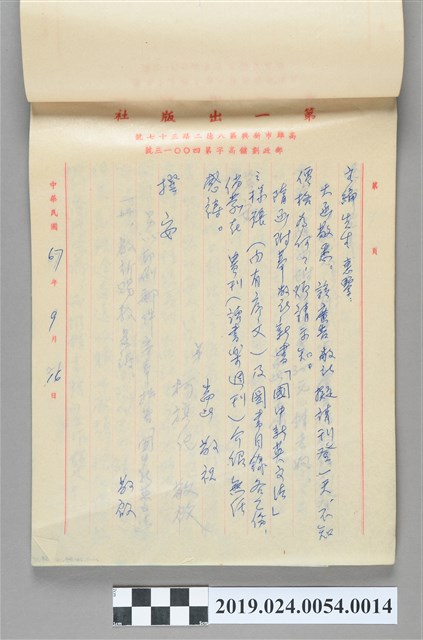 第一出版社
高雄市新興區八德二路三十七號
郵政劃儲高字第四〇〇一三號
第 頁
先生惠鑒:
大函敬悉。該廣告敝社擬請刊登一天,不知
價格為何?煩請示知。
隨函附奉敝社新書「國中新英文法」
之樣張(內有序文)及圖書目錄各乙份,
倘蒙在 貴刊(讀書樂週刊)介紹無任
感禱。
耑此 敬祝
撰安
敬啟
中華民國 67 年 9 月 26 日
2019.024.0054.0014